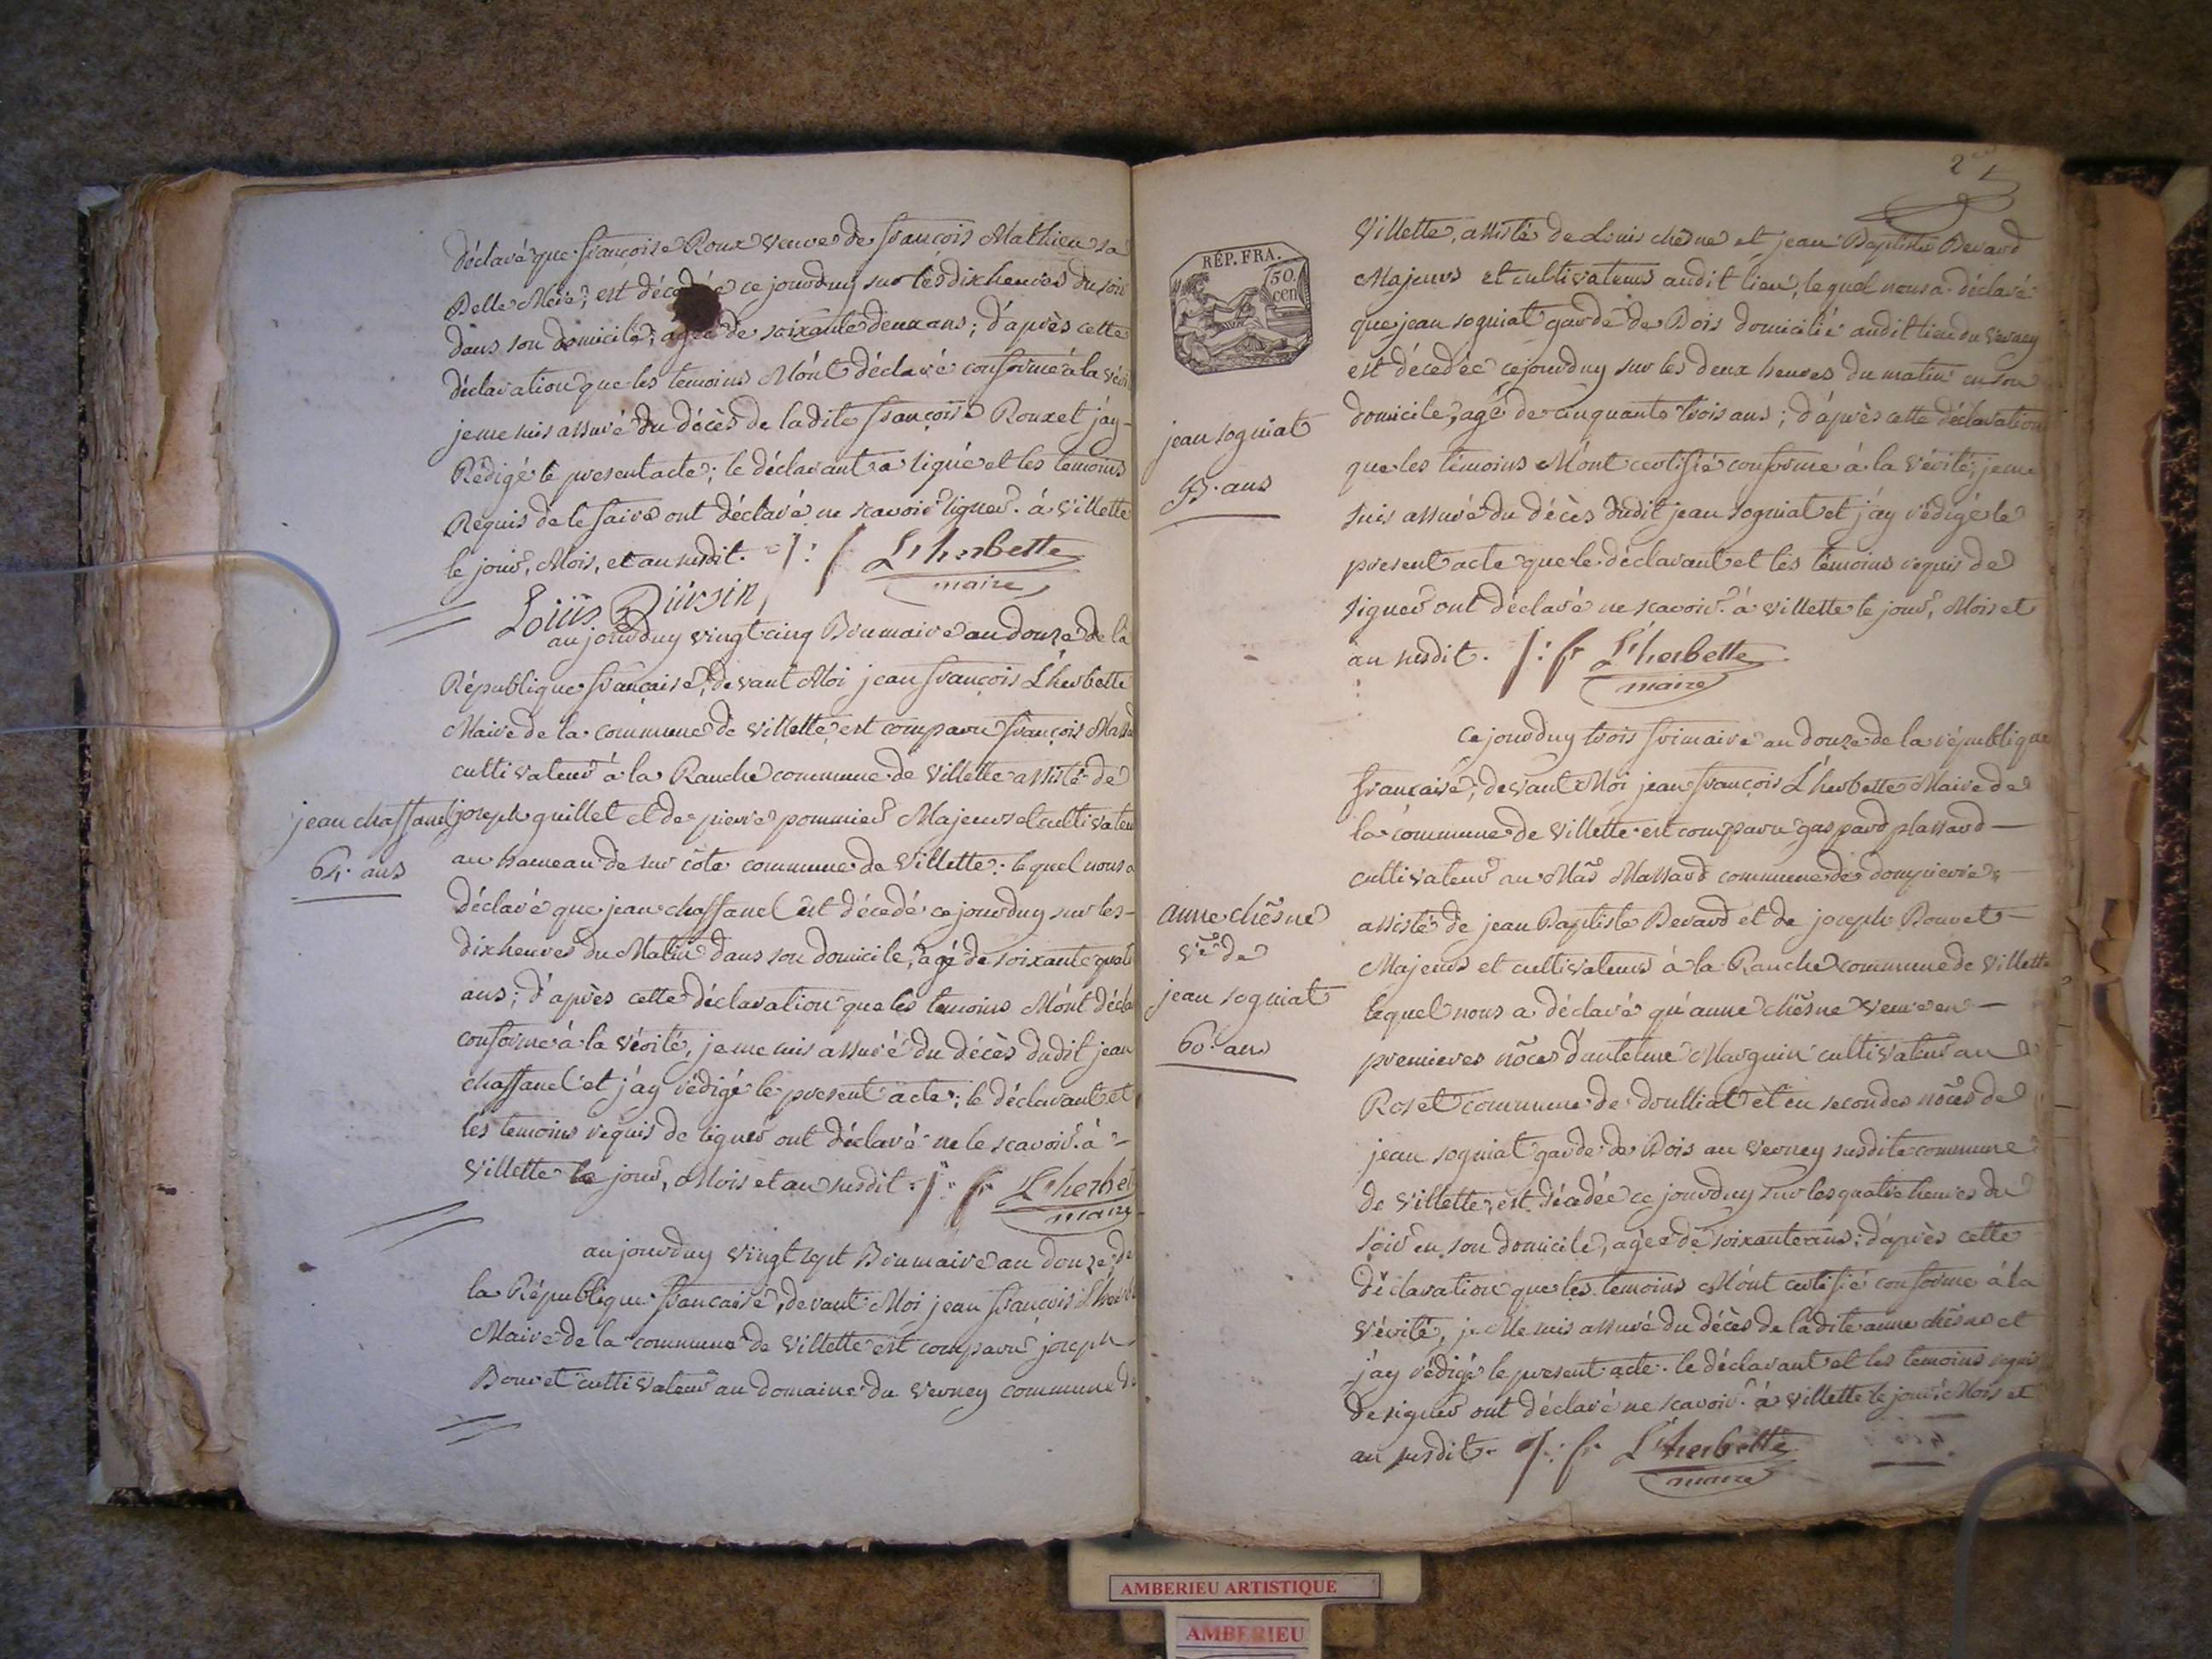 déclaré que françoise Roux veuve de françois Mathieu sa
Belle Mere, est décedée ce jourduy sur les dix heures du soir
dans son domicile, agée de soixante deux ans; d'après cette
déclaration que les temoins M'ont déclaré conforme à la véri
je me suis assuré du décès de ladite françoise Roux et j'ay
Rédigé le present acte; le déclarant a signé et les temoins
Requis de le faire ont déclaré ne scavoir signer. à Villette
le jour, Mois, et an susdit. J: f L'herbette
maire
Loüis Dürsin
aujourduy vingt cinq Brumaire an douze de la
République française, devant Moi jean françois L'herbette
Maire de la commune de Villette est comparu françois
cultivateur à la Ranche commune de Villette assisté de
jean chaffanel
joseph guillet et de pierre pommier Majeurs et cultivateu
64. ans
au hameau de sur côte commune de Villette: lequel nous a
déclaré que jean chaffanel est décedé ce jourduy sur les
dix heures du Matin dans son domicile, agé de soixante quat
ans; d'après cette déclaration que les temoins M'ont décla
conforme à la vérité, je me suis assuré du décès dudit jean
chaffanel et j'ay rédigé le present acte; le déclarant et
les temoins requis de signer ont déclaré ne le scavoir. à
Villette le jour, Mois et an susdit. J: f L'herbet
maire
aujourduy vingt sept Brumaire an douze de
la République française, devant Moi jean françois L'herbe
Maire de la commune de Villette est comparu joseph
Bouvet cultivateur au domaine du Verney commune de
2
RÉP. FRA.
50.
cen
Villette, assisté de Louis chêsne et jean Baptiste Bevard
Majeurs et cultivateurs audit lieu, lequel nous a déclaré
que jean sogniat garde de Bois domicilié audit lieu du Verney
est décedée cejourduy sur les deux heures du matin en son
domicile, agé de cinquante trois ans; d'après cette déclaration
jean sogniat
53. ans
que les témoins M'ont certifié conforme à la vérité, je me
suis assuré du décès dudit jean sogniat et j'ay rédigé le
present acte que le déclarant et les témoins requis de
signer ont déclaré ne scavoir. à Villette le jour, Mois et
an susdit. J: f L'herbette
maire
Cejourduy trois frimaire an douze de la république
française, devant Moi jean françois L'herbette Maire de
la commune de Villette est comparu gaspard plassard
cultivateur au Mas Massard commune de dompierre
anne chêsne
vve de
jean sogniat
60. ans
assisté de jean Baptiste Bevard et de joseph Bouvet
Majeurs et cultivateurs à la Ranche commune de Villette
lequel nous a déclaré qu'anne chêsne veuve en
premieres nôces d'antelme Marguin cultivateur au
Roset commune de doulliat et en secondes nôces de
jean sogniat garde de Bois au Verney susdite commune
de Villette, est décedée ce jourduy sur les quatre heures du
soir en son domicile, agée de soixante ans: d'après cette
déclaration que les temoins M'ont certifié conforme à la
vérité, je Me suis assuré du décès de ladite anne chêsne et
j'ay rédigé le present acte. le déclarant et les temoins requis
de signer ont déclaré ne scavoir. à Villette le jour, Mois et
an susdit. J: f. L'herbette
maire
AMBERIEU ARTISTIQUE
AMBERIEU